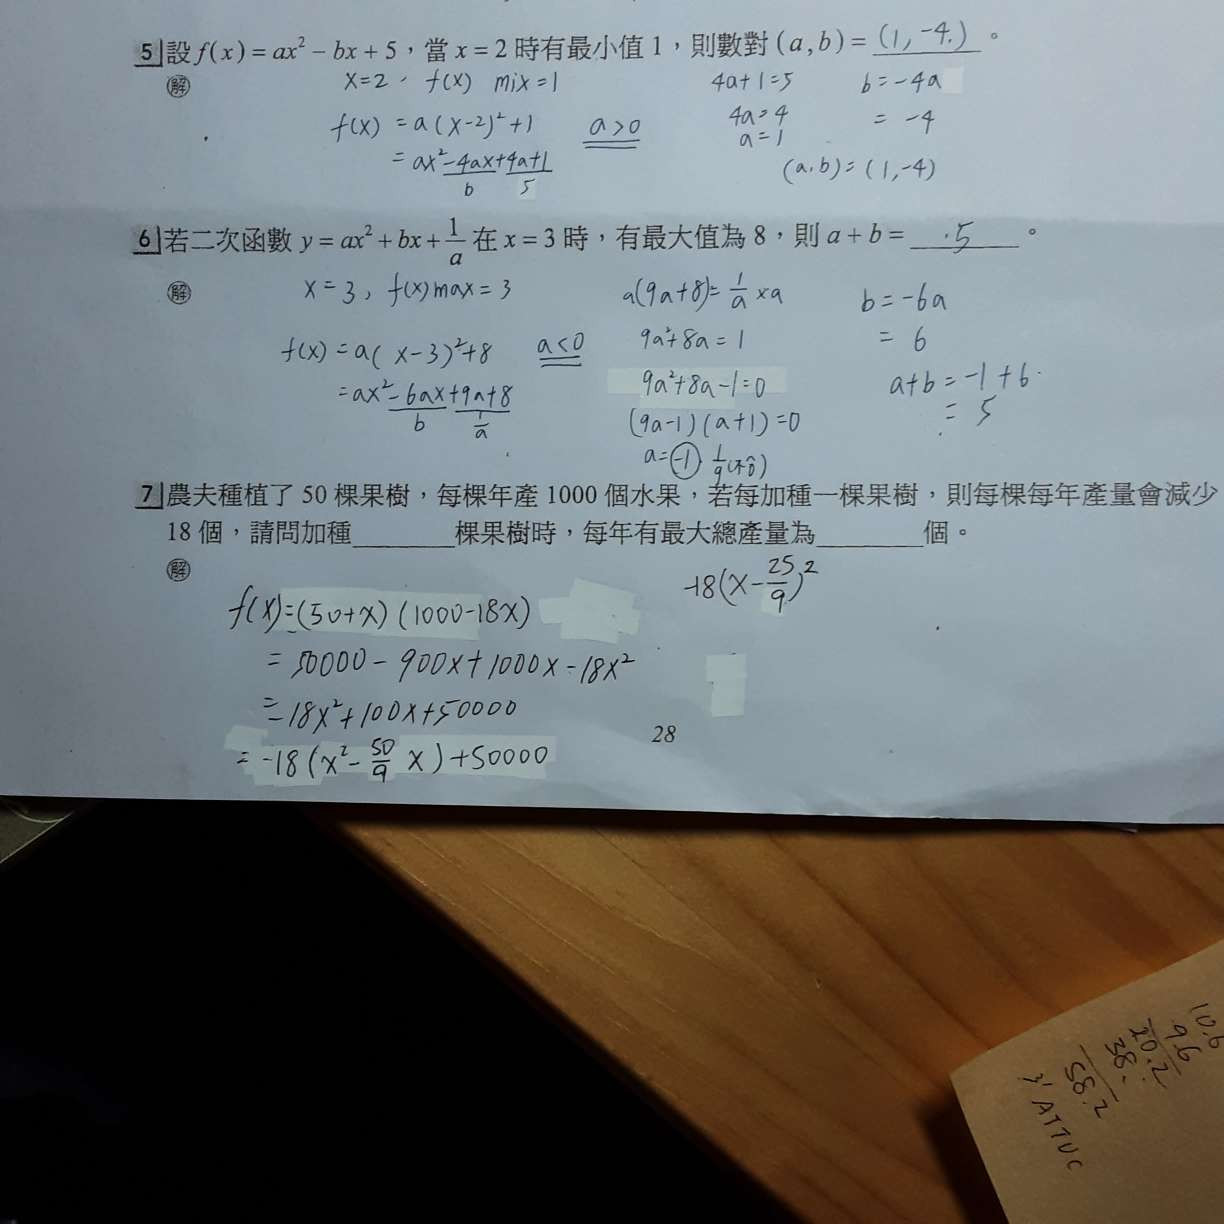 5 設 f(x) = ax² − bx + 5，當 x = 2 時有最小值 1，則數對 (a, b) = (1, -4.)。
解 x=2, f(x) mix = 1
f(x) = a(x-2)²+1 a>0
= ax²-4ax+4a+1
b 5
4a+1=5
4a=4
a=1
b=-4a
= -4
(a.b)=(1,-4)
6 若二次函數 y = ax² + bx + 1/a 在 x = 3 時，有最大值為 8，則 a + b = 5。
解 x=3, f(x) max = 3
f(x) = a(x-3)²+8 a<0
= ax²-6ax+9a+8
b 1/a
a(9a+8)=1/a×a
9a²+8a=1
9a²+8a-1=0
(9a-1)(a+1)=0
a=-1, 1/9(不合)
b=-6a
= 6
a+b=-1+6
= 5
7 農夫種植了 50 棵果樹，每棵年產 1000 個水果，若每加種一棵果樹，則每棵每年產量會減少
18 個，請問加種______棵果樹時，每年有最大總產量為______個。
解
f(x)=(50+x)(1000-18x)
= 50000-900x+1000x-18x²
= -18x²+100x+50000
= -18(x²-50/9 x)+50000
-18(x-25/9)²
28
10.6
9.6
20.2
38.
58.2